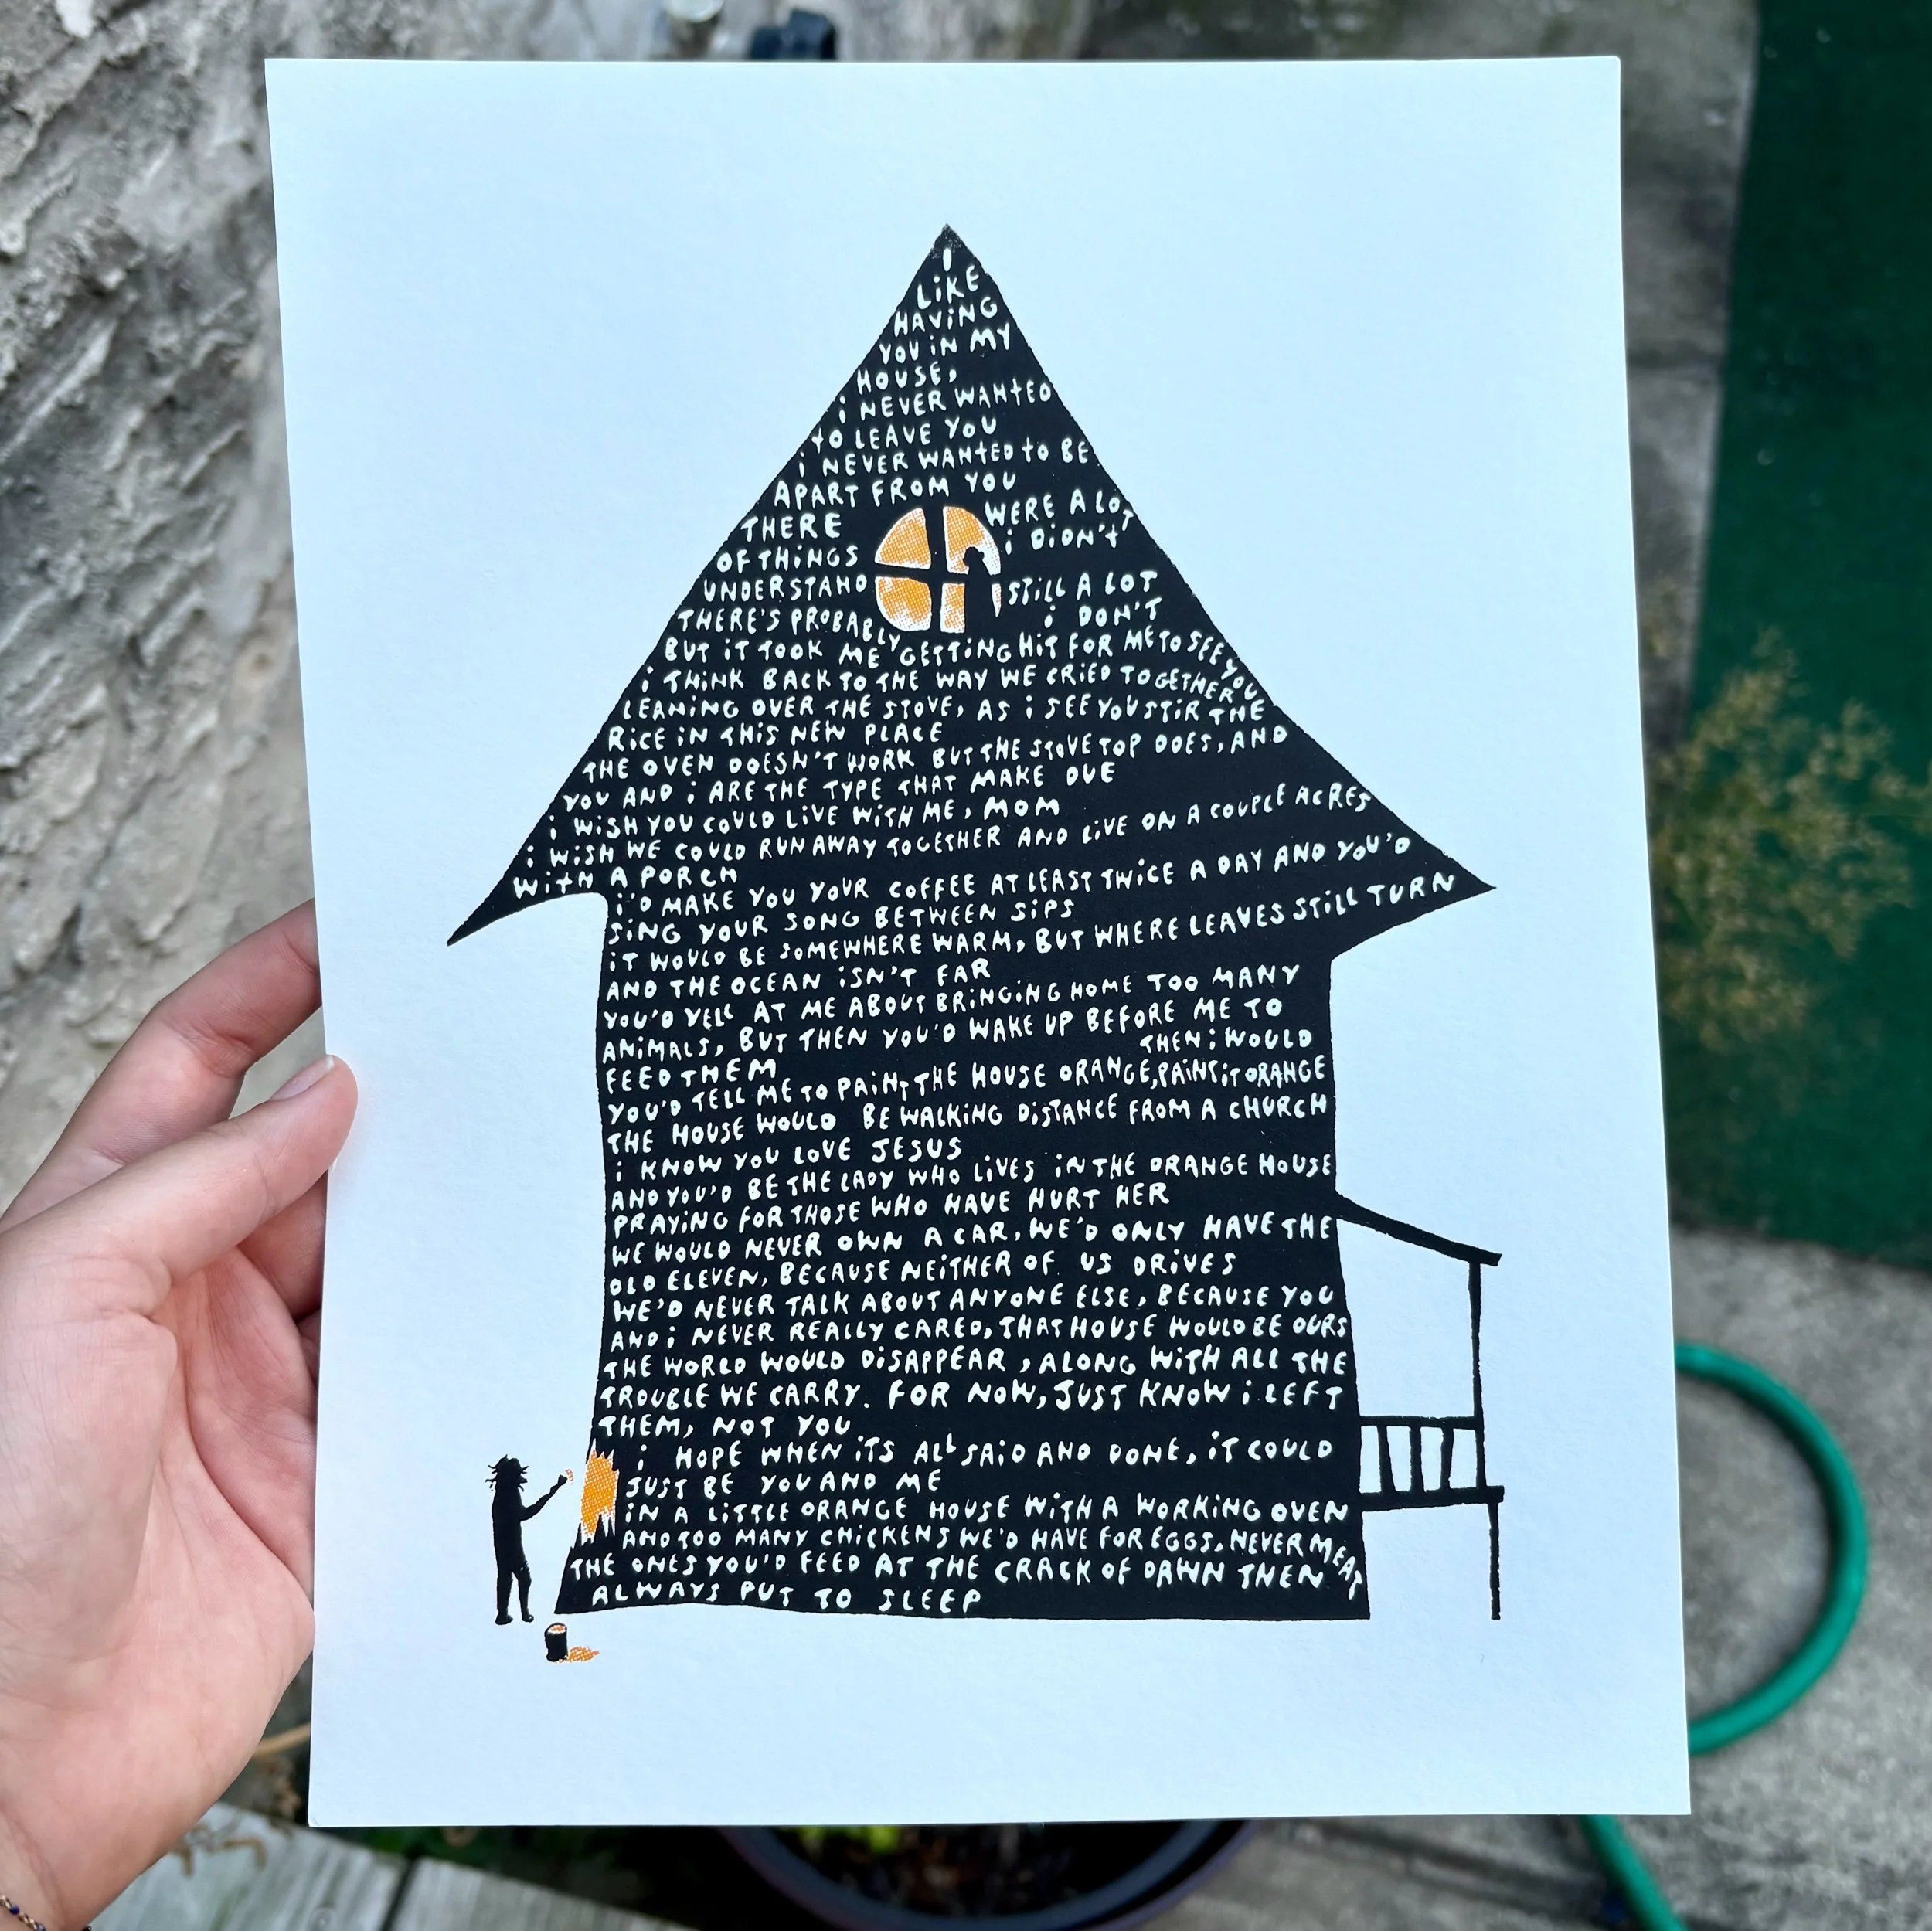 i
LiKE
HAViNG
YOU iN MY
HOUSE,
i NEVER WANTED
TO LEAVE YOU
i NEVER WANTED TO BE
APART FROM YOU
THERE WERE A LOT
OF THiNGS i DiDN'T
UNDERSTAND STiLL A LOT
THERE'S PROBABLY i DON'T
BUT iT TOOK ME GETTiNG HiT FOR ME TO SEE YOU
i THiNK BACK TO THE WAY WE CRiED TOGETHER
LEANiNG OVER THE STOVE, AS i SEE YOU STiR THE
RiCE iN THiS NEW PLACE
THE OVEN DOESN'T WORK BUT THE STOVE TOP DOES, AND
YOU AND i ARE THE TYPE THAT MAKE DUE
i WiSH YOU COULD LiVE WiTH ME, MOM
i WiSH WE COULD RUN AWAY TOGETHER AND LiVE ON A COUPLE ACRES
WiTH A PORCH
i'D MAKE YOU YOUR COFFEE AT LEAST TWiCE A DAY AND YOU'D
SiNG YOUR SONG BETWEEN SiPS
iT WOULD BE SOMEWHERE WARM, BUT WHERE LEAVES STiLL TURN
AND THE OCEAN iSN'T FAR
YOU'D YELL AT ME ABOUT BRiNGiNG HOME TOO MANY
ANiMALS, BUT THEN YOU'D WAKE UP BEFORE ME TO
FEED THEM THEN i WOULD
YOU'D TELL ME TO PAiNT THE HOUSE ORANGE, PAiNT iT ORANGE
THE HOUSE WOULD BE WALKiNG DiSTANCE FROM A CHURCH
i KNOW YOU LOVE JESUS
AND YOU'D BE THE LADY WHO LiVES iN THE ORANGE HOUSE
PRAYiNG FOR THOSE WHO HAVE HURT HER
WE WOULD NEVER OWN A CAR, WE'D ONLY HAVE THE
OLD ELEVEN, BECAUSE NEiTHER OF US DRiVES
WE'D NEVER TALK ABOUT ANYONE ELSE, BECAUSE YOU
AND i NEVER REALLY CARED, THAT HOUSE WOULD BE OURS
THE WORLD WOULD DiSAPPEAR, ALONG WiTH ALL THE
TROUBLE WE CARRY. FOR NOW, JUST KNOW i LEFT
THEM, NOT YOU
i HOPE WHEN iTS ALL SAiD AND DONE, iT COULD
JUST BE YOU AND ME
iN A LiTTLE ORANGE HOUSE WiTH A WORKiNG OVEN
AND TOO MANY CHiCKENS WE'D HAVE FOR EGGS, NEVER MEAT
THE ONES YOU'D FEED AT THE CRACK OF DAWN THEN
ALWAYS PUT TO SLEEP